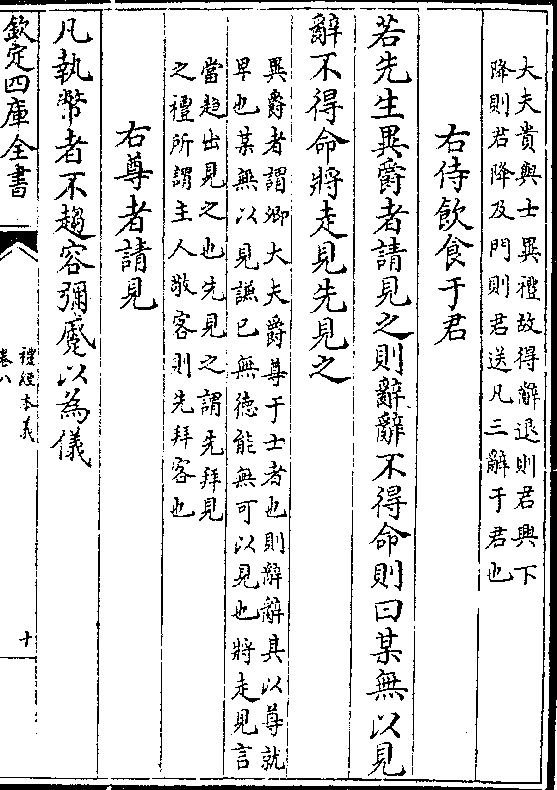 大夫貴與士異禮故得辭退則君興下
降則君降及門則君送凡三辭于君也
右侍飲食于君
若先生異爵者請見之則辭辭不得命則曰某無以見
辭不得命將走見先見之
異爵者謂卿大夫爵尊于士者也則辭辭其以尊就
卑也某無以見謙己無德能無可以見也將走見言
當趨出見之也先見之謂先拜見
之禮所謂主人敬客則先拜客也
右尊者請見
凡執幣者不趨容彌蹙以為儀
欽定四庫全書
禮經本義
卷八
十